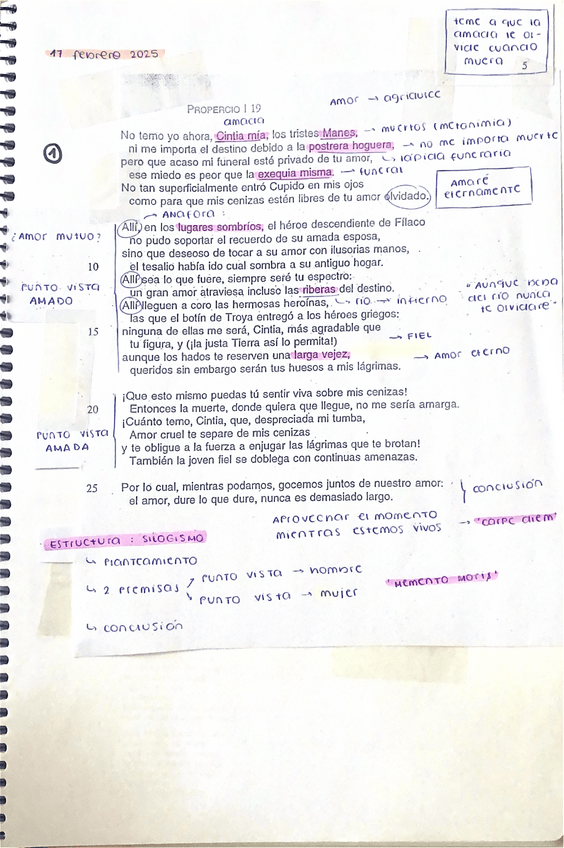 teme a que la
amada le ol-
vide cuando
muera 5
17 febrero 2025
Amor → agridulce
PROPERCIO I 19
amada
No temo yo ahora, Cintia mía, los tristes Manes, → muertos (metonimia)
ni me importa el destino debido a la postrera hoguera, → no me importa muerte
pero que acaso mi funeral esté privado de tu amor, ↳ lapida funeraria
ese miedo es peor que la exequia misma. → funeral
No tan superficialmente entró Cupido en mis ojos
como para que mis cenizas estén libres de tu amor olvidado.
Amaré
eternamente
1
→ ANAFORA :
Allí, en los lugares sombríos, el héroe descendiente de Fílaco
¿AMOR MUTUO?
no pudo soportar el recuerdo de su amada esposa,
sino que deseoso de tocar a su amor con ilusorias manos,
10 el tesalio había ido cual sombra a su antiguo hogar.
Allí sea lo que fuere, siempre seré tu espectro:
PUNTO VISTA
AMADO
un gran amor atraviesa incluso las riberas del destino.
Allí lleguen a coro las hermosas heroínas, ↳ río → infierno
"Aunque beba
del río nunca
te olvidaré"
las que el botín de Troya entregó a los héroes griegos:
15 ninguna de ellas me será, Cintia, más agradable que
tu figura, y (¡la justa Tierra así lo permita!) → FIEL
aunque los hados te reserven una larga vejez, → Amor eterno
queridos sin embargo serán tus huesos a mis lágrimas.
¡Que esto mismo puedas tú sentir viva sobre mis cenizas!
20 Entonces la muerte, donde quiera que llegue, no me sería amarga.
¡Cuánto temo, Cintia, que, despreciada mi tumba,
PUNTO VISTA
AMADA
Amor cruel te separe de mis cenizas
y te obligue a la fuerza a enjugar las lágrimas que te brotan!
También la joven fiel se doblega con continuas amenazas.
25 Por lo cual, mientras podamos, gocemos juntos de nuestro amor:
el amor, dure lo que dure, nunca es demasiado largo.
conclusión
Aprovechar el momento
mientras estemos vivos → "carpe diem"
ESTRUCTURA : SILOGISMO
↳ Planteamiento
↳ 2 premisas
punto vista → hombre
punto vista → mujer
"MEMENTO MORIS"
↳ conclusión